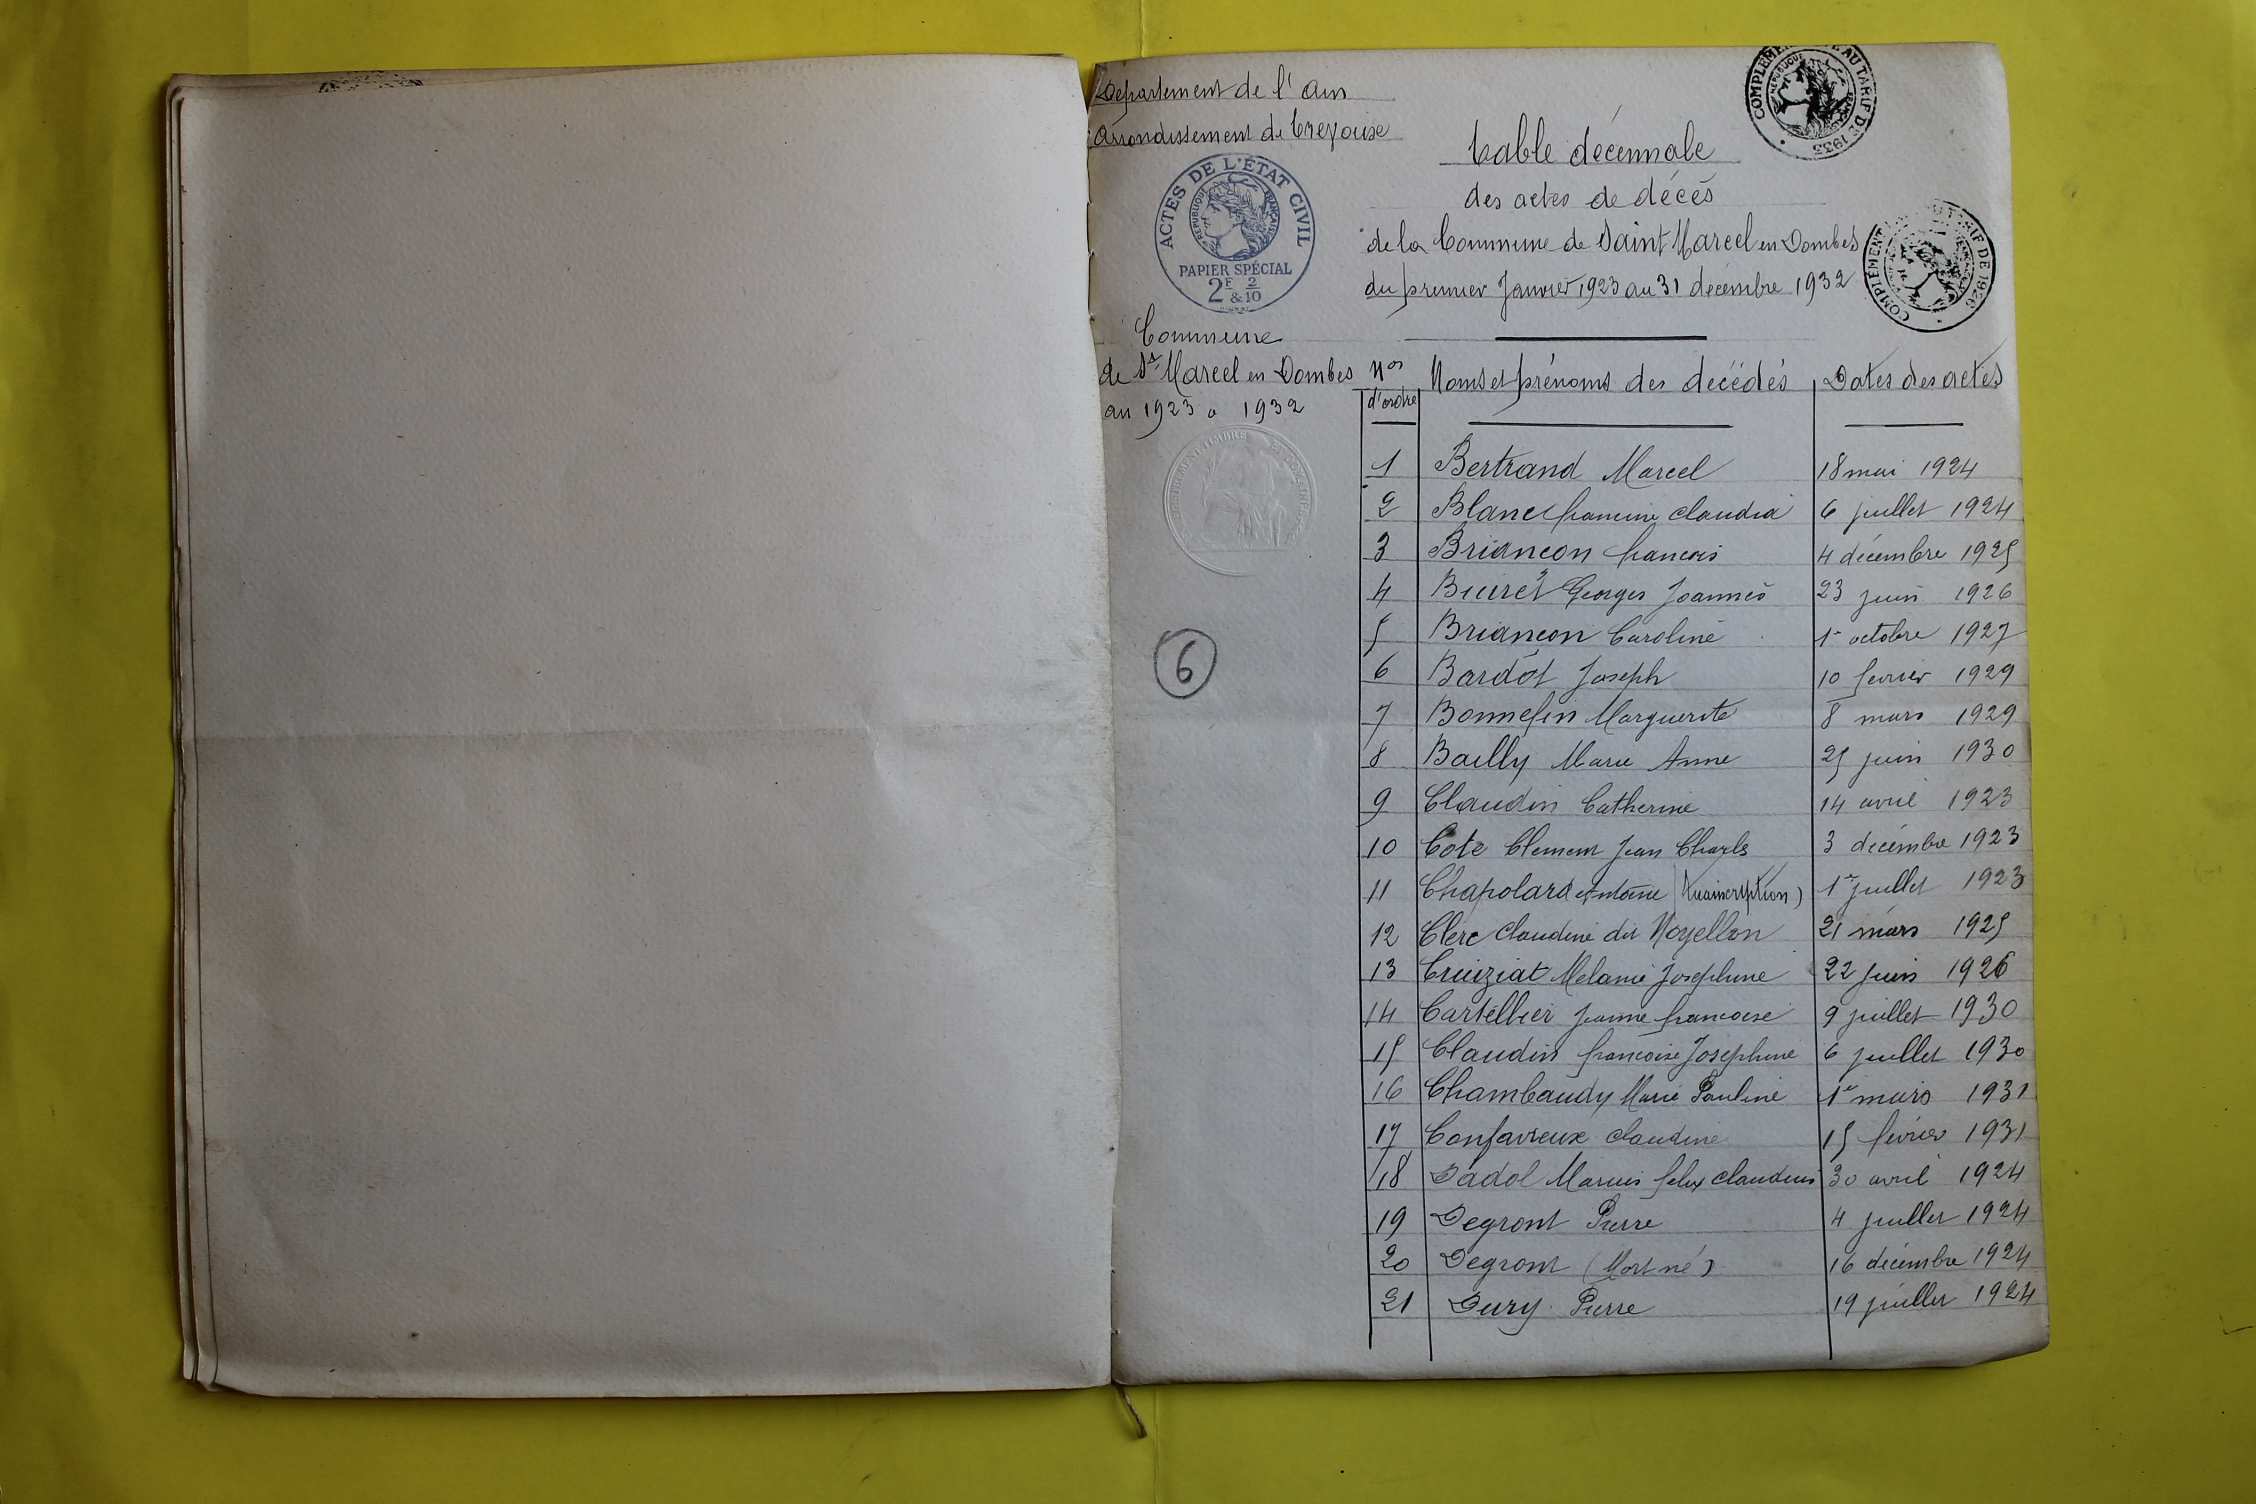 Departement de l'ain
Arrondissement de Trevouse
COMPLÉMENT AU TARIF DE 1933
Table décennale
des actes de décès
de la Commune de Saint Marcel en Dombes
du premier Janvier 1923 au 31 décembre 1932
ACTES DE L'ÉTAT CIVIL
RÉPUBLIQUE FRANÇAISE
PAPIER SPÉCIAL
2F & 2/10
COMPLÉMENT TARIF DE 1926
Commune
de St Marcel en Dombes
an 1923 a 1932
Nos d'ordre Noms et prénoms des décédés Dates des actes
1 Bertrand Marcel 18 mai 1924
2 Blanc francine claudia 6 juillet 1924
3 Briancon francois 4 décembre 1925
4 Buiret Georges Joannès 23 juin 1926
5 Briancon Caroline 1er octobre 1927
6 Bardot Joseph 10 fevrier 1929
7 Bonnefin Marguerite 8 mars 1929
8 Bailly Marie Anne 25 juin 1930
9 Claudin Catherine 14 avril 1923
10 Cote Clement Jean Charles 3 décembre 1923
11 Chapolard Antoine (Transcription) 1er juillet 1923
12 Clerc claudine dit Noyellon 21 mars 1925
13 Cruiziat Melanie Josephine 22 juin 1926
14 Cartellier Jeanne francoise 9 juillet 1930
15 Claudin francoise Josephine 6 juillet 1930
16 Chambaudy Marie Pauline 1er mars 1931
17 Confavreux claudine 15 février 1931
18 Dadol Marius felix claudius 30 avril 1924
19 Degront Pierre 4 juillet 1924
20 Degront (Mort né) 16 décembre 1924
21 Dury Pierre 19 juillet 1924
6